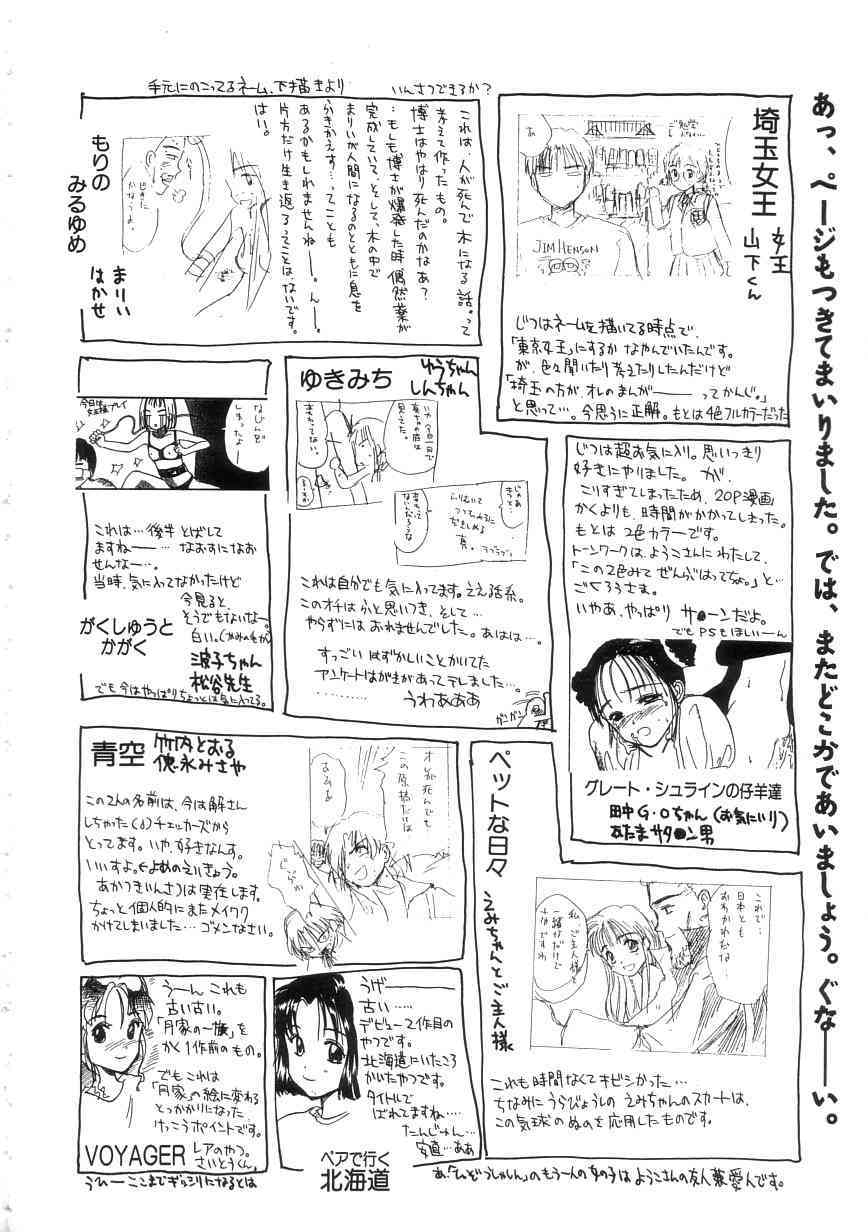 あっ、ページもつきてまいりました。では、またどこかであいましょう。ぐなーーい。
手元にのこってるネーム、下描きより
いんさつできるか?
埼玉女王
女王
山下くん
あ
JIM HENSON
じつはネームを描いてる時点で、
「東京女王」にするか なやんでいたんです。
が、色々聞いたり考えたりしたんだけど
「埼玉の方が、オレのまんが――ってかんじ。」
と思って…。今思うに正解。もとは4色フルカラーだった
これは、人が死んで木になる話。って
考えて作ったもの。
博士はやはり死んだのかなあ?
…もしも博士が爆発した時 偶然薬が
完成していて、そして、木の中で
まりいが人間になるのとともに息を
ふきかえす…ってことも
あるかもしれませんねー。んー。
片方だけ生き返るってことは、ないです。
はい。
もりの
みるゆめ
まりい
はかせ
ゆきみち
ゆうちゃん
しんちゃん
これは自分でも気に入ってます。ええ話系。
このオチはふと思いつき、そして…
やらずには おれませんでした。あはは…。
すっごい はずかしいことかいてた
アンケートはがきがあってテレました…。
………… うわあああ
ガンガン
今日は
女王様プレイ
これは…後半とばして
ますねー…なおすになお
せんなー…。
当時、気に入ってなかったけど
今見ると、
そうでもないなー。
白い。(かみの毛が)
がくしゅうと
かがく
波子ちゃん
松谷先生
でも今はやっぱりちょっとは気に入ってる。
じつは超お気に入り。思いっきり
好きにやりました。が、
こりすぎてしまったため、20P漫画
かくよりも、時間がかかってしまった。
もとは2色カラーです。
トーンワークは、ようこさんにわたして、
「この2色みて ぜんぶはってちょ。」と…
ごくろうさま。
いやあ、やっぱり サ●ーンだよ。
でもPSもほしいーん
グレート・シュラインの仔羊達
田中G・Oちゃん(お気にいり)
あたまサタ●ーン男
青空
竹内とおる
徳永みさや
この2人の名前は、今は解さん
しちゃった(δ)チェッカーズから
とってます。いや、好きなんす。
いいすよ。←よめのえいきょう。
あかつきいんさつは実在します。
ちょっと個人的にまたメイワク
かけてしまいました…ゴメンなさい。
オレが死んでも
この原稿だけは
ペットな日々
えみちゃんとご主人様
これで…
日本とも
おわかれだな…
私、ご主人様と
一緒なだけで
これも時間なくてキビシかった…
ちなみにうらびょうしの えみちゃんのスカートは、
この気球の ぬのを応用したものです。
うーん これも
古い古い。
「月家の一族」を
かく1作前のもの。
でもこれは
「月家」の絵に変わる
とっかかりになった
けっこうポイントです。
VOYAGER
レアのやつ。
さいとうくん。
うげーー
古い……
デビュー2作目の
やつです。
北海道にいたころ
かいたやつです。
タイトルで
ばれてますね…
たんじゅん…
安直…ああ
ペアで行く
北海道
うひーーここまでぎっしりになるとは